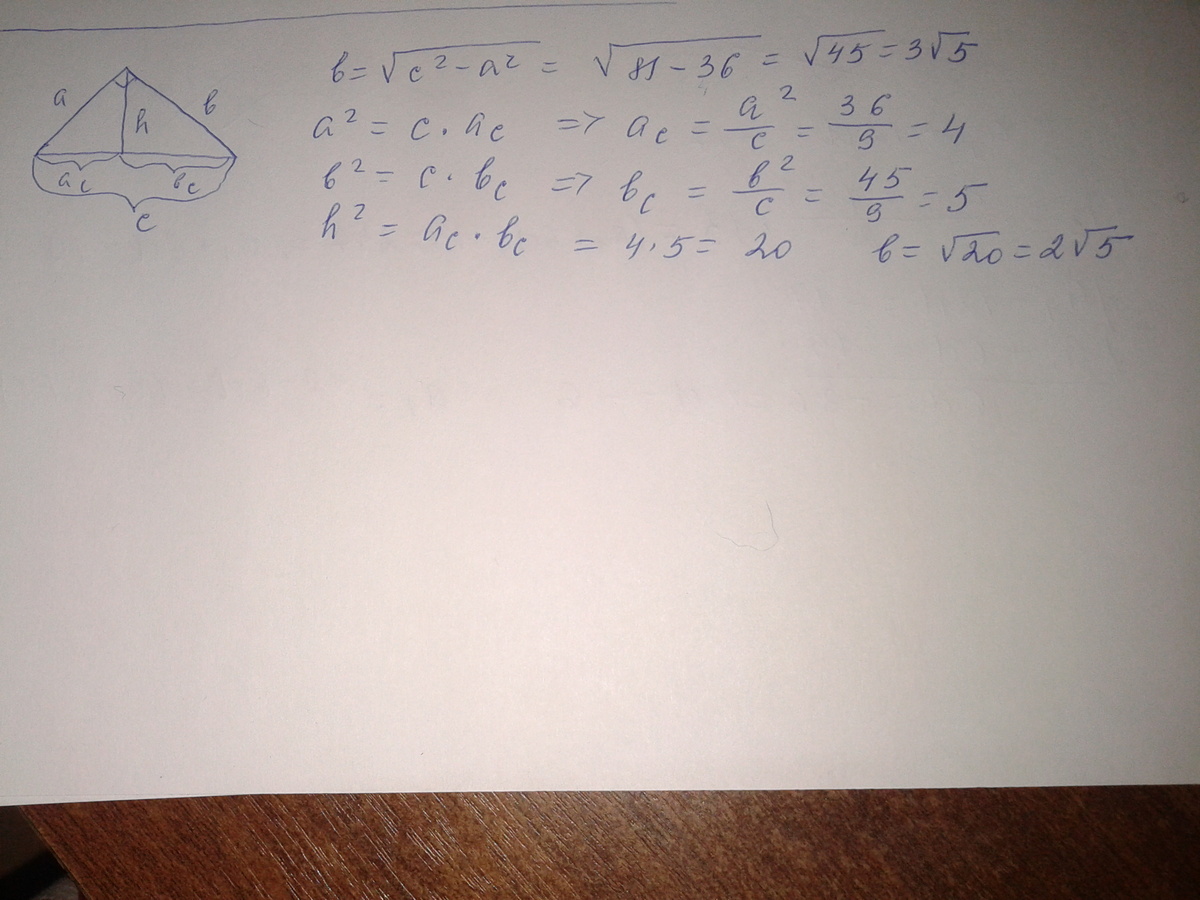 a
h
в
a_c
в_c
c
в = √(c² - a²) = √(81 - 36) = √45 = 3√5
a² = c · a_c => a_c = a²/c = 36/9 = 4
в² = c · в_c => в_c = в²/c = 45/9 = 5
h² = a_c · в_c = 4 · 5 = 20 в = √20 = 2√5